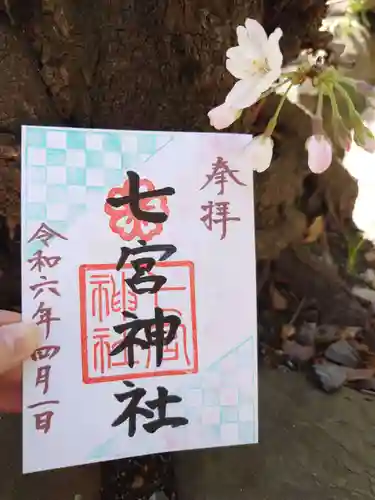 奉拝
七宮神社
七宮神社
令和六年四月一日